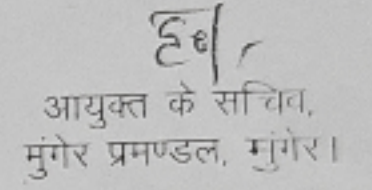 ह०/
आयुक्त के सचिव,
मुंगेर प्रमण्डल, मुंगेर।